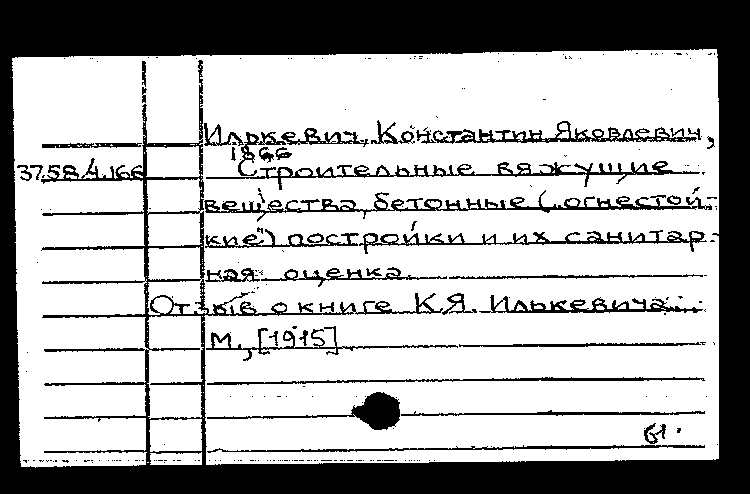 Илькевич, Константин Яковлевич,
1866
37.58.4.166 Строительные вяжущие
вещества, бетонные („огнестой-
кие") постройки и их санитар-
ная оценка.
Отзыв о книге К.Я. Илькевича...
М., [1915]